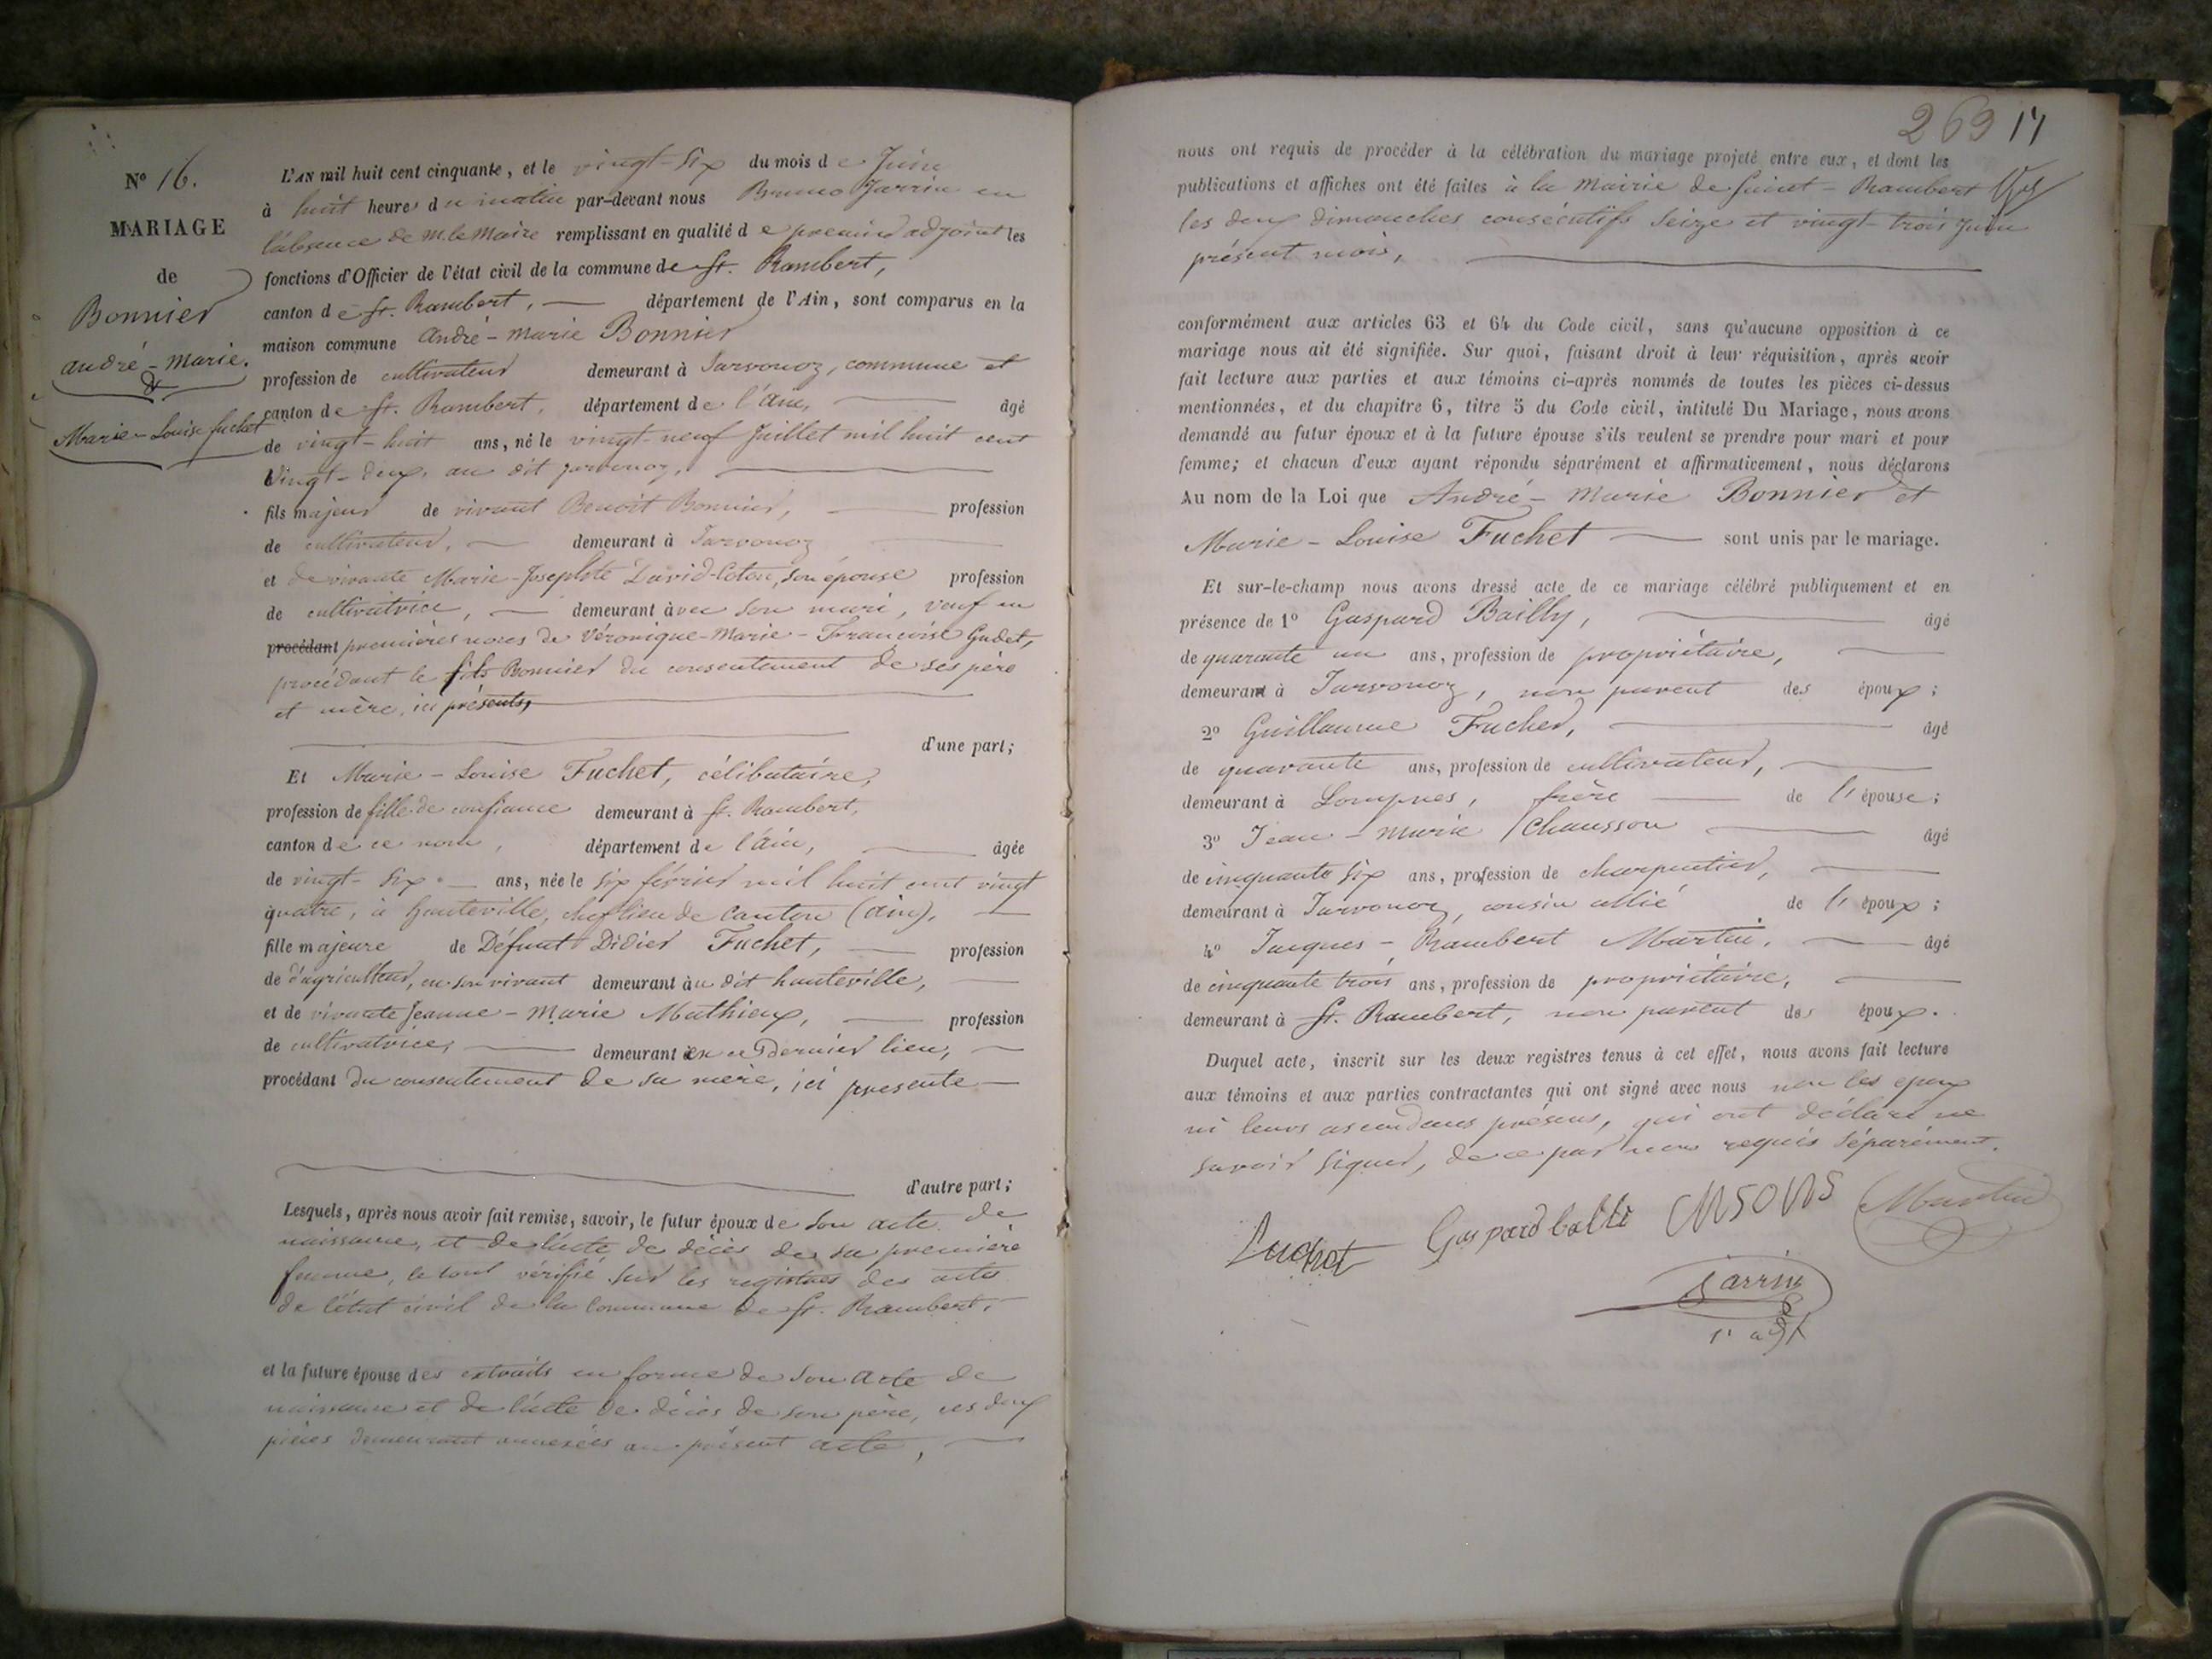 N° 16.
MARIAGE
de
Bonnier
andré-marie.
&
Marie-Louise fuchet
L'AN mil huit cent cinquante, et le vingt-six du mois de Juin
à huit heures du matin par-devant nous Bruno Jarrin en
l'absence de m. le Maire remplissant en qualité de premier adjoint les
fonctions d'Officier de l'état civil de la commune de St. Rambert,
canton de St. Rambert, département de l'Ain, sont comparus en la
maison commune André-Marie Bonnier
profession de cultivateur demeurant à Javornoz, commune et
canton de St. Rambert, département de l'ain, âgé
de vingt-huit ans, né le vingt-neuf Juillet mil huit cent
vingt-deux, au dit javornoz,
fils majeur de vivant Benoit Bonnier, profession
de cultivateur, demeurant à Javornoz
et de vivante Marie-Josephte David-Coton, son épouse profession
de cultivatrice, demeurant avec son mari, veuf en
procédant premières noces de Véronique-Marie-Françoise Gudet,
procédant le fils Bonnier du consentement de ses père
et mère, ici présents,
d'une part;
Et Marie-Louise Fuchet, célibataire,
profession de fille de confiance demeurant à St. Rambert,
canton de ce nom, département de l'ain, âgée
de vingt-six ans, née le six février mil huit cent vingt
quatre, à hauteville, chef lieu de Canton (ain),
fille majeure de Défunt Didier Fuchet, profession
de d'agriculteur, en son vivant demeurant au dit hauteville,
et de vivante Jeanne-Marie Mathieux, profession
de cultivatrice, demeurant en ce dernier lieu,
procédant du consentement de sa mère, ici presente
d'autre part;
Lesquels, après nous avoir fait remise, savoir, le futur époux de son acte de
naissance, et de l'acte de décès de sa première
femme, le tout vérifié sur les registres des actes
de l'état civil de la Commune de St. Rambert,
et la future épouse des extraits en forme de son acte de
naissance et de l'acte de décès de son père, ces deux
pièces demeurant annexées au présent acte,
269 17
nous ont requis de procéder à la célébration du mariage projeté entre eux, et dont les
publications et affiches ont été faites à la Mairie de Saint-Rambert
les deux dimanches consécutifs seize et vingt-trois juin
présent mois,
conformément aux articles 63 et 64 du Code civil, sans qu'aucune opposition à ce
mariage nous ait été signifiée. Sur quoi, faisant droit à leur réquisition, après avoir
fait lecture aux parties et aux témoins ci-après nommés de toutes les pièces ci-dessus
mentionnées, et du chapitre 6, titre 5 du Code civil, intitulé Du Mariage, nous avons
demandé au futur époux et à la future épouse s'ils veulent se prendre pour mari et pour
femme; et chacun d'eux ayant répondu séparément et affirmativement, nous déclarons
Au nom de la Loi que André-Marie Bonnier et
Marie-Louise Fuchet sont unis par le mariage.
Et sur-le-champ nous avons dressé acte de ce mariage célébré publiquement et en
présence de 1° Gaspard Bailly, âgé
de quarante un ans, profession de propriétaire,
demeurant à Javornoz, non parent des époux;
2° Guillaume Fuchet, âgé
de quarante ans, profession de cultivateur,
demeurant à Lompnes, frère de l'épouse;
3° Jean-Marie Chausson âgé
de cinquante six ans, profession de charpentier,
demeurant à Javornoz, cousin allié de l'époux;
4° Jacques-Rambert Martin, âgé
de cinquante trois ans, profession de propriétaire,
demeurant à St. Rambert, non parent des époux.
Duquel acte, inscrit sur les deux registres tenus à cet effet, nous avons fait lecture
aux témoins et aux parties contractantes qui ont signé avec nous non les epoux
ni leurs ascendans présens, qui ont déclaré ne
savoir signer, de ce par nous requis séparément.
Fuchet Martin
Jarrin
1r adjt